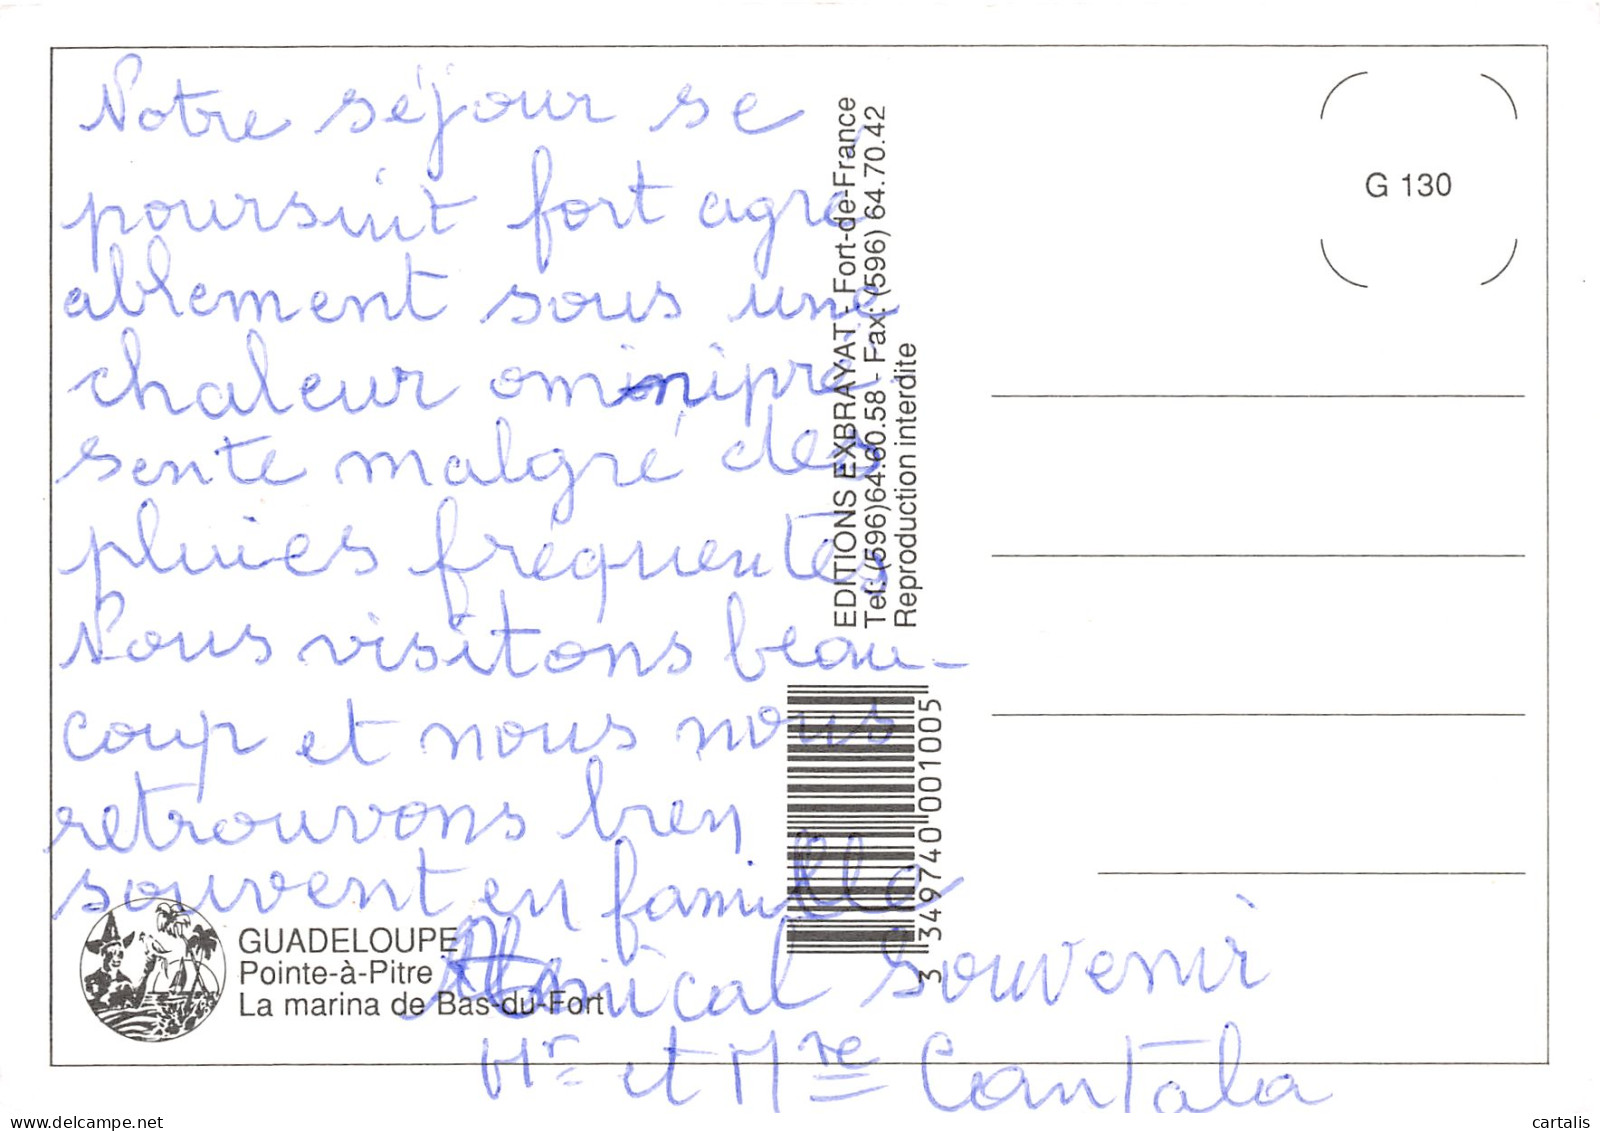 Notre séjour se
poursuit fort agré
ablement sous une
chaleur ominipré.
sente malgré des
pluies fréquentes
Nous visitons beau-
coup et nous nous
retrouvons bien
souvent en famille
Amical Souvenir
Mr et Mre Cantala
GUADELOUPE
Pointe-à-Pitre
La marina de Bas-du-Fort
EDITIONS EXBRAYAT - Fort-de-France
Tel. (596)64.60.58 - Fax: (596) 64.70.42
Reproduction interdite
3 349740 001005
G 130
delcampe.net
cartalis